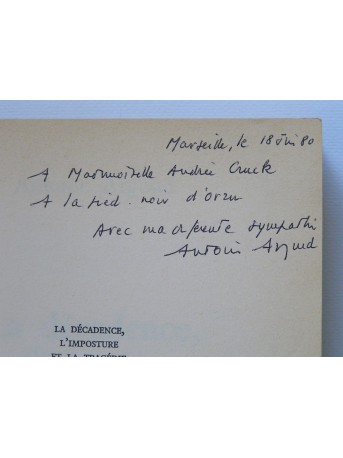 Marseille, le 18 Juin 80
A Mademoiselle Andrée Cruck
A la pied-noir d'Oran
Avec ma déférente sympathie
Antoine Argoud
LA DÉCADENCE,
L'IMPOSTURE
ET LA TRAGÉDIE